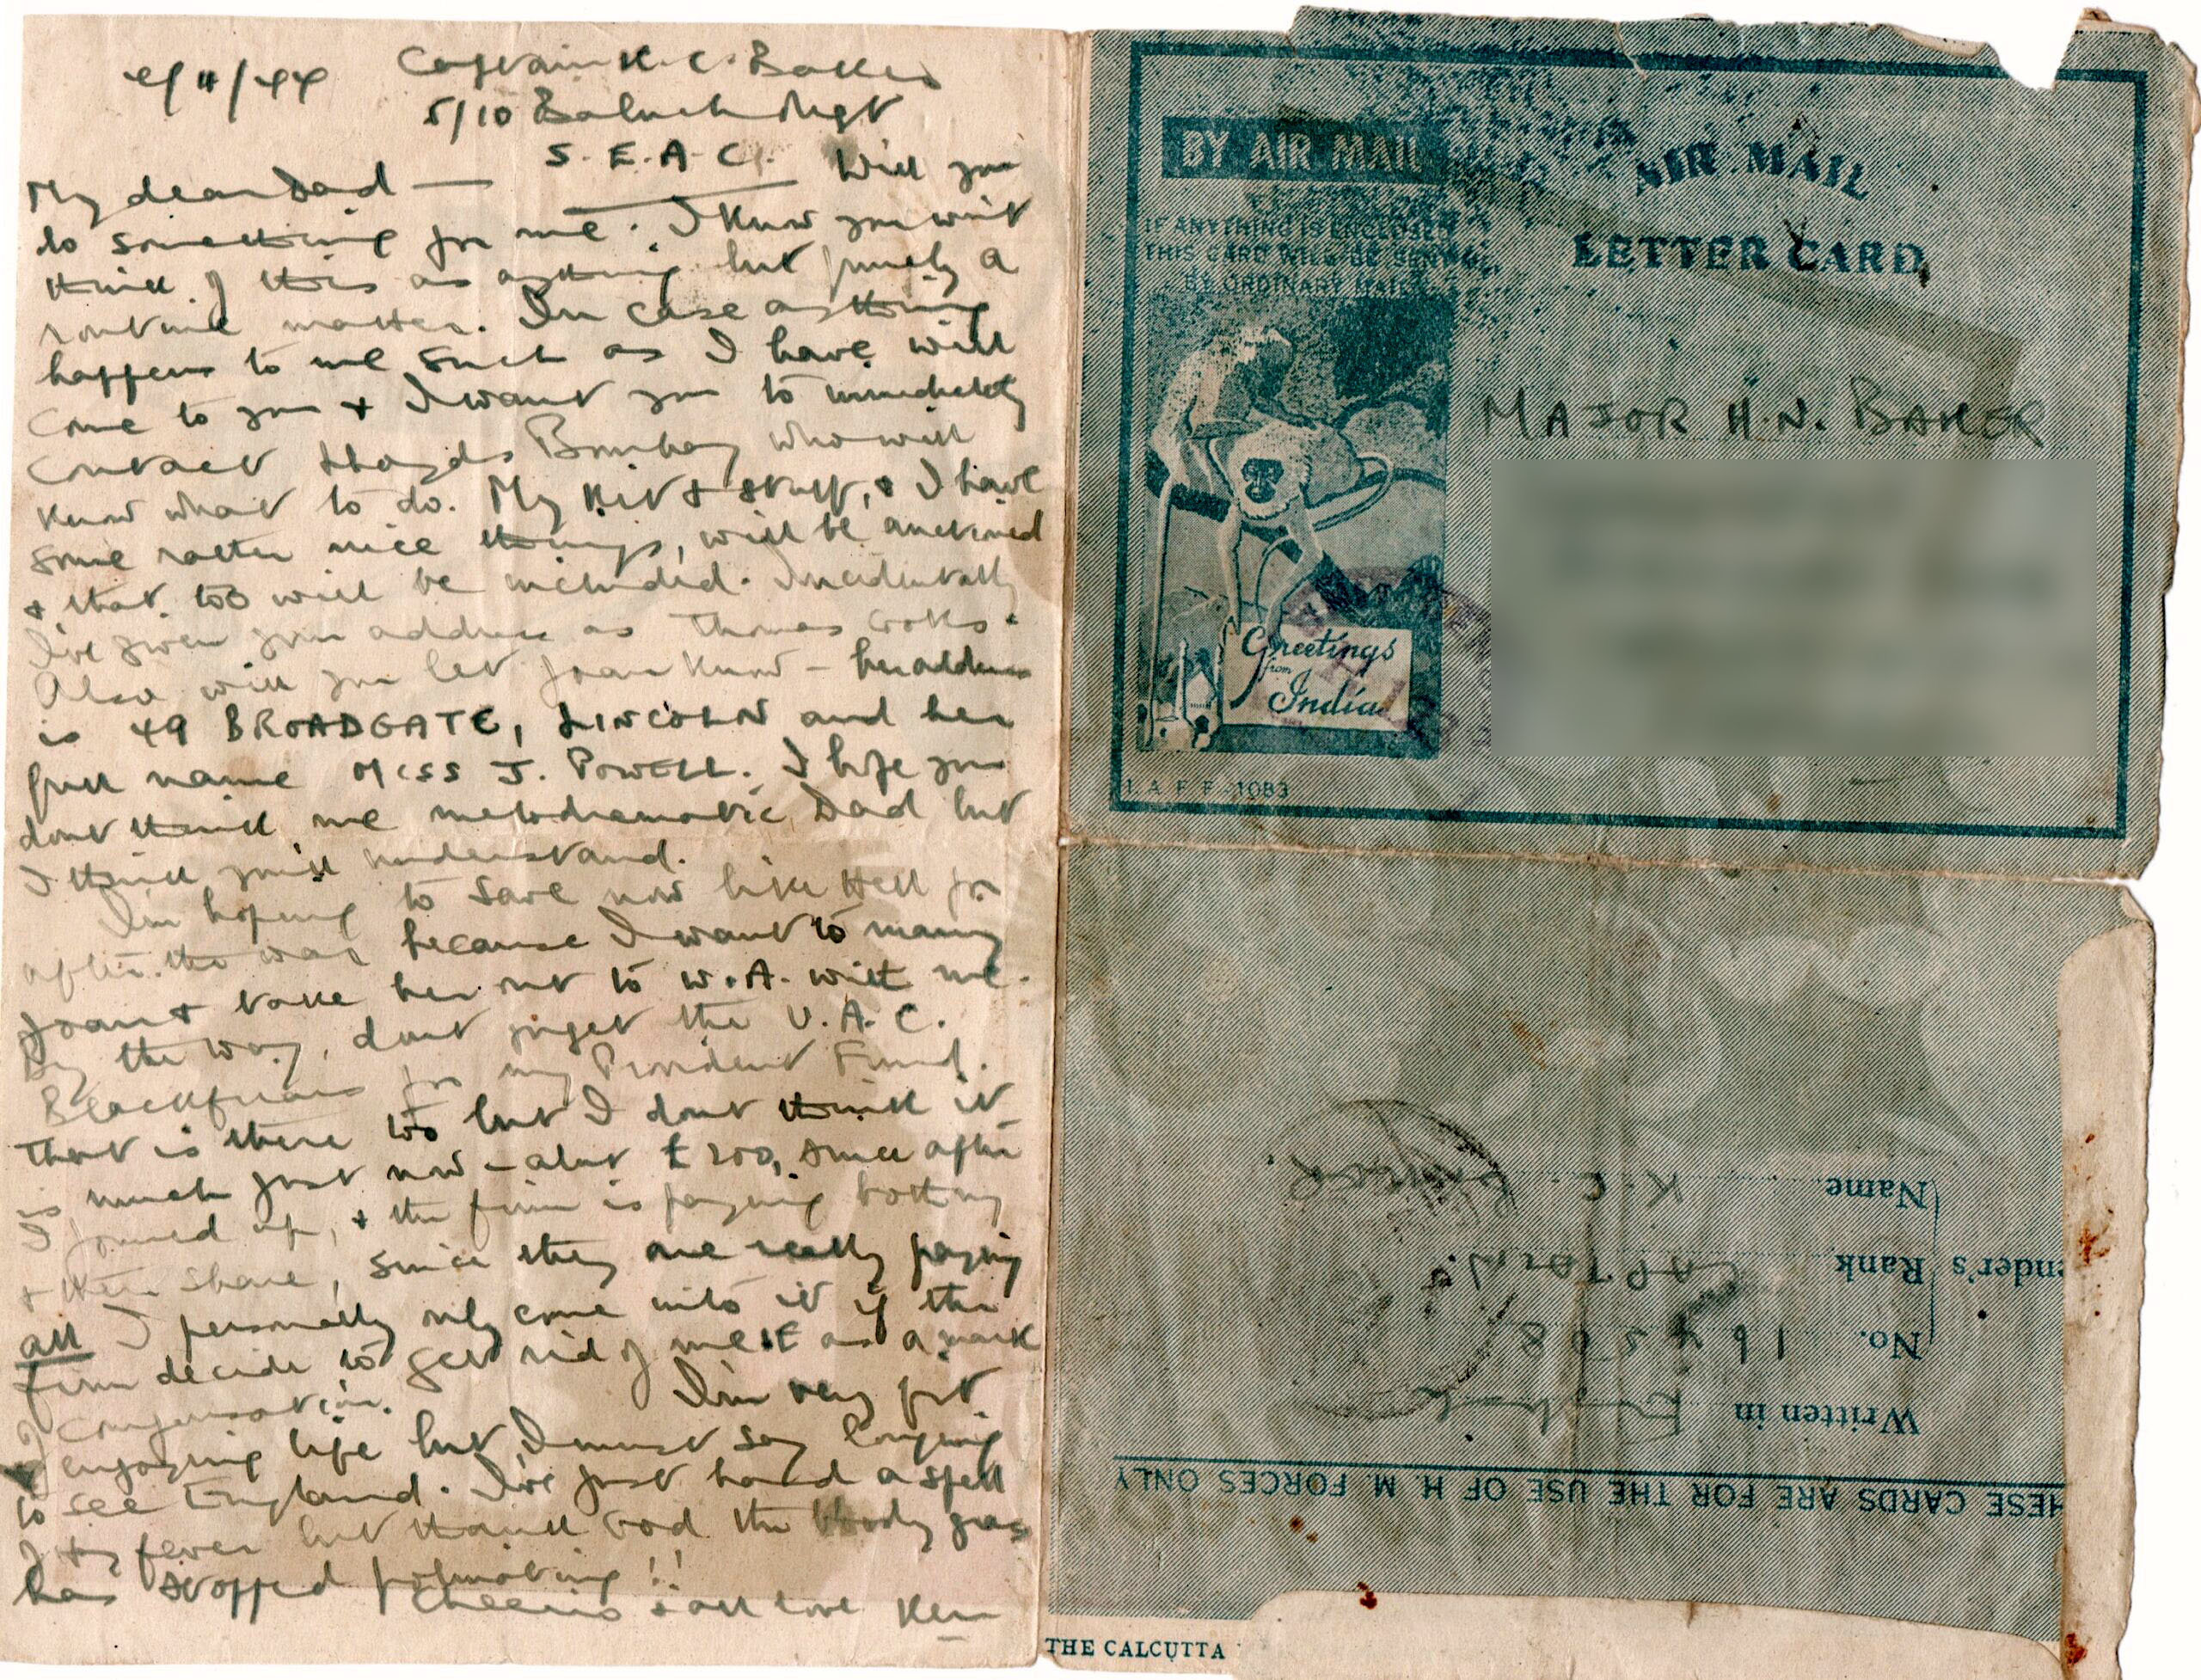 4/11/44 Captain K. C. Baker
5/10 Baluch Regt
S.E.A.C.
My dear Dad — Will you
do something for me. I know you won't
think of this as anything but purely a
routine matter. In case anything
happens to me such as I have will
come to you & I want you to immediately
contact Lloyds Bombay who will
know what to do. My kit & stuff, & I have
some rather nice things, will be auctioned
& that too will be included. Incidentally
I've given your address as Thomas Cooks.
Also will you let Joan know – her address
is 49 BROADGATE, LINCOLN and her
full name MISS J. POWELL. I hope you
dont think me melodramatic Dad but
I think you'll understand.
I'm hoping to save now like Hell for
after the war because I want to marry
Joan & take her out to W.A. with me.
By the way, dont forget the U.A.C.
Blackfriars for my Provident Fund.
That is there too but I dont think it
is much just now – about £200, since after
I joined up, & the firm is paying both my
& their share, since they are really paying
all I personally only come into it if the
firm decide to get rid of me as a mark
of compensation. I'm very fit
enjoying life but, I must say longing
to see England. I've just had a spell
of hay fever but thank God the bloody grass
has stopped pollinating!!
Cheerio & all love Ken
BY AIR MAIL
AIR MAIL
LETTER CARD
IF ANYTHING IS ENCLOSED
THIS CARD WILL BE SENT
BY ORDINARY MAIL
MAJOR H.N. BAKER
Greetings
from
India
I. A. F. F.-1083
HESE CARDS ARE FOR THE USE OF H. M. FORCES ONLY
Written in English
No. 164508
ender's Rank CAPTAIN
Name K. C. BAKER
THE CALCUTTA